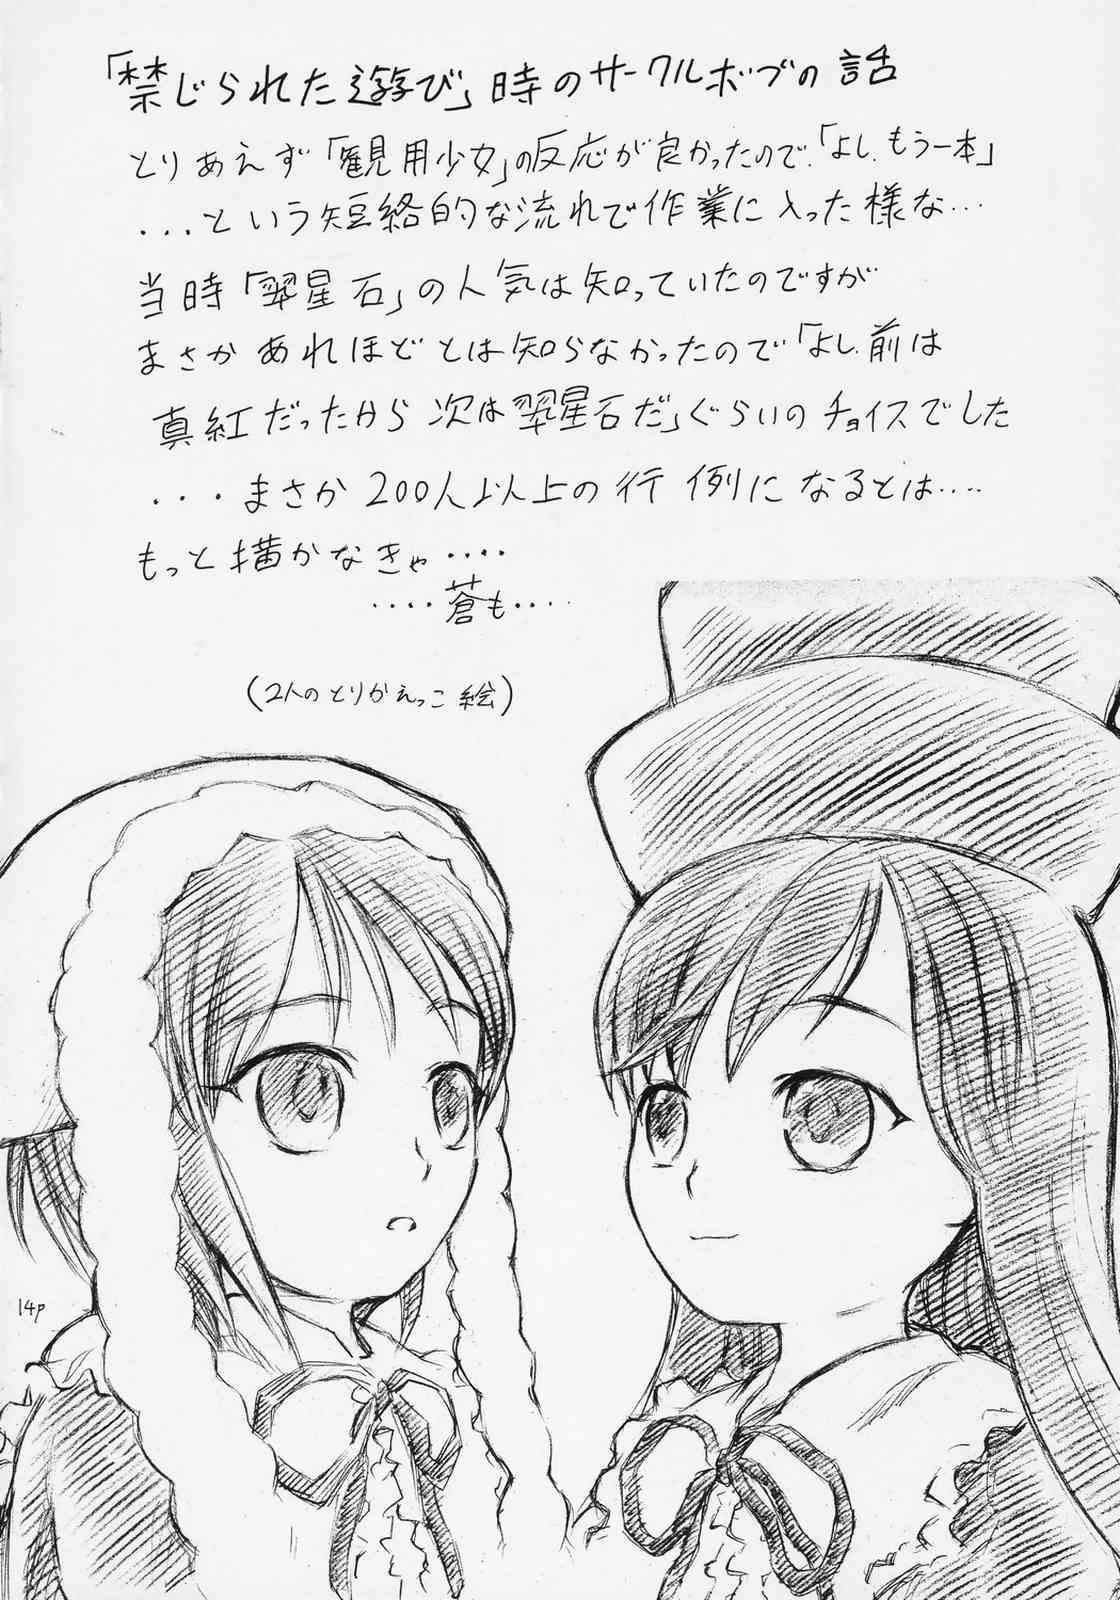 「禁じられた遊び」時のサークルボブの話
とりあえず「観用少女」の反応が良かったので、「よし、もう一本」
・・・という短絡的な流れで作業に入った様な・・・
当時「翠星石」の人気は知っていたのですが
まさかあれほどとは知らなかったので「よし、前は
真紅だったから次は翠星石だ」ぐらいのチョイスでした
・・・まさか200人以上の行例になるとは・・・・
もっと描かなきゃ・・・・
・・・・蒼も・・・・
(2人のとりかえっこ絵)
14p